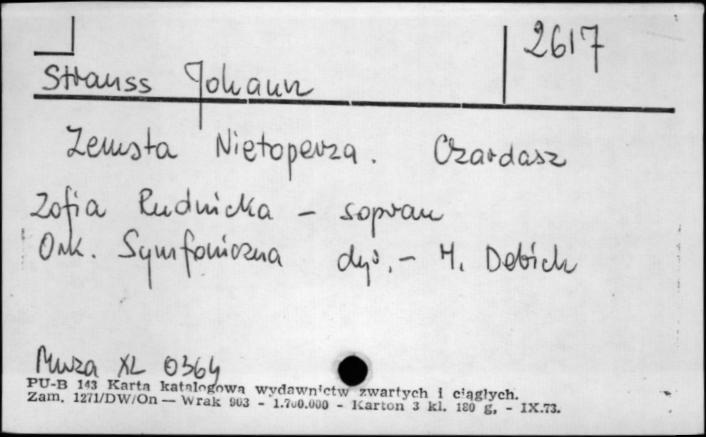 2617
Strauss Johann
Zemsta Nietoperza. Czardasz
Zofia Rudnicka - sopran
Ork. Symfoniczna dyr. - H. Debich
Muza XL 0364
PU-B 143 Karta katalogowa wydawnictw zwartych i ciągłych.
Zam. 1271/DW/On — Wrak 903 - 1.700.000 - Karton 3 kl. 180 g, - IX.73.